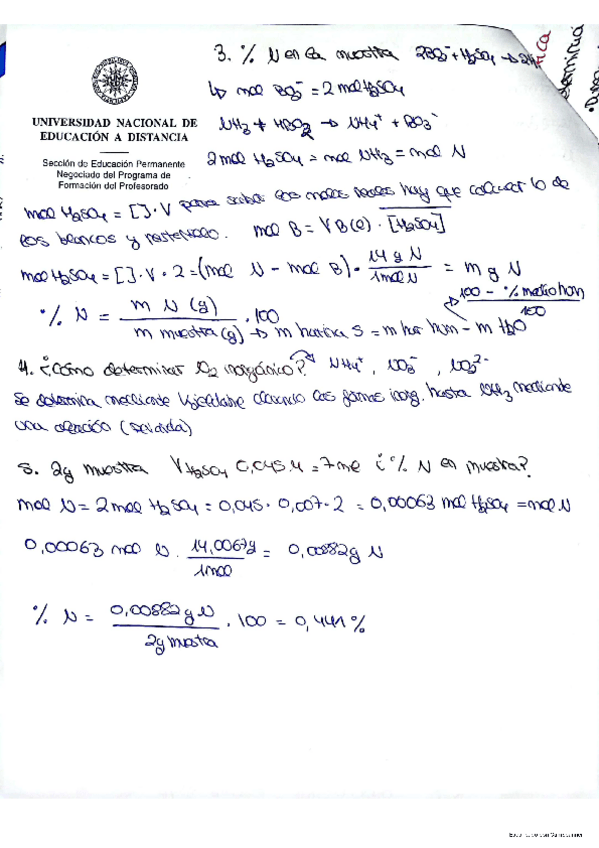 3. % N en la muestra 2BO3⁻ + H2SO4 →
UNIVERSIDAD NACIONAL DE
EDUCACIÓN A DISTANCIA
Sección de Educación Permanente
Negociado del Programa de
Formación del Profesorado
↳ mol BO3⁻ = 2 mol H2SO4
NH3 + HBO2 → NH4⁺ + BO3⁻
2 mol H2SO4 = mol NH3 = mol N
mol H2SO4 = [ ] · V para saber los moles reales hay que calcular lo de
los blancos y restarlo. mol B = V B(l) · [H2SO4]
mol H2SO4 = [ ] · V · 2 = (mol N - mol B) · 14 g N / 1 mol N = m g N
% N = m N (g) / m muestra (g) · 100 → m harina s = m har hum - m H2O
100 - % / 100
4. ¿Cómo determinar N2 inorgánico? NH4⁺, NO3⁻, NO2⁻
Se determina mediante Kjeldahl las formas inorg. hasta NH3 mediante
una
5. 2g muestra VH2SO4 0,045 M = 7 ml ¿% N en muestra?
mol N = 2 mol H2SO4 = 0,045 · 0,007 · 2 = 0,00063 mol H2SO4 = mol N
0,00063 mol N · 14,0067g / 1mol = 0,00882g N
% N = 0,00882 g N / 2g muestra · 100 = 0,441 %